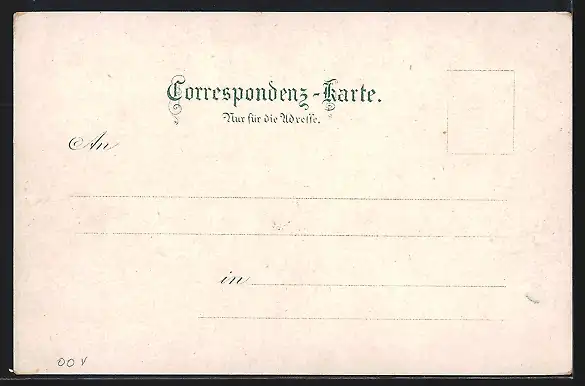 Correspondenz-Karte.
Nur für die Adresse.
An
in
00 V